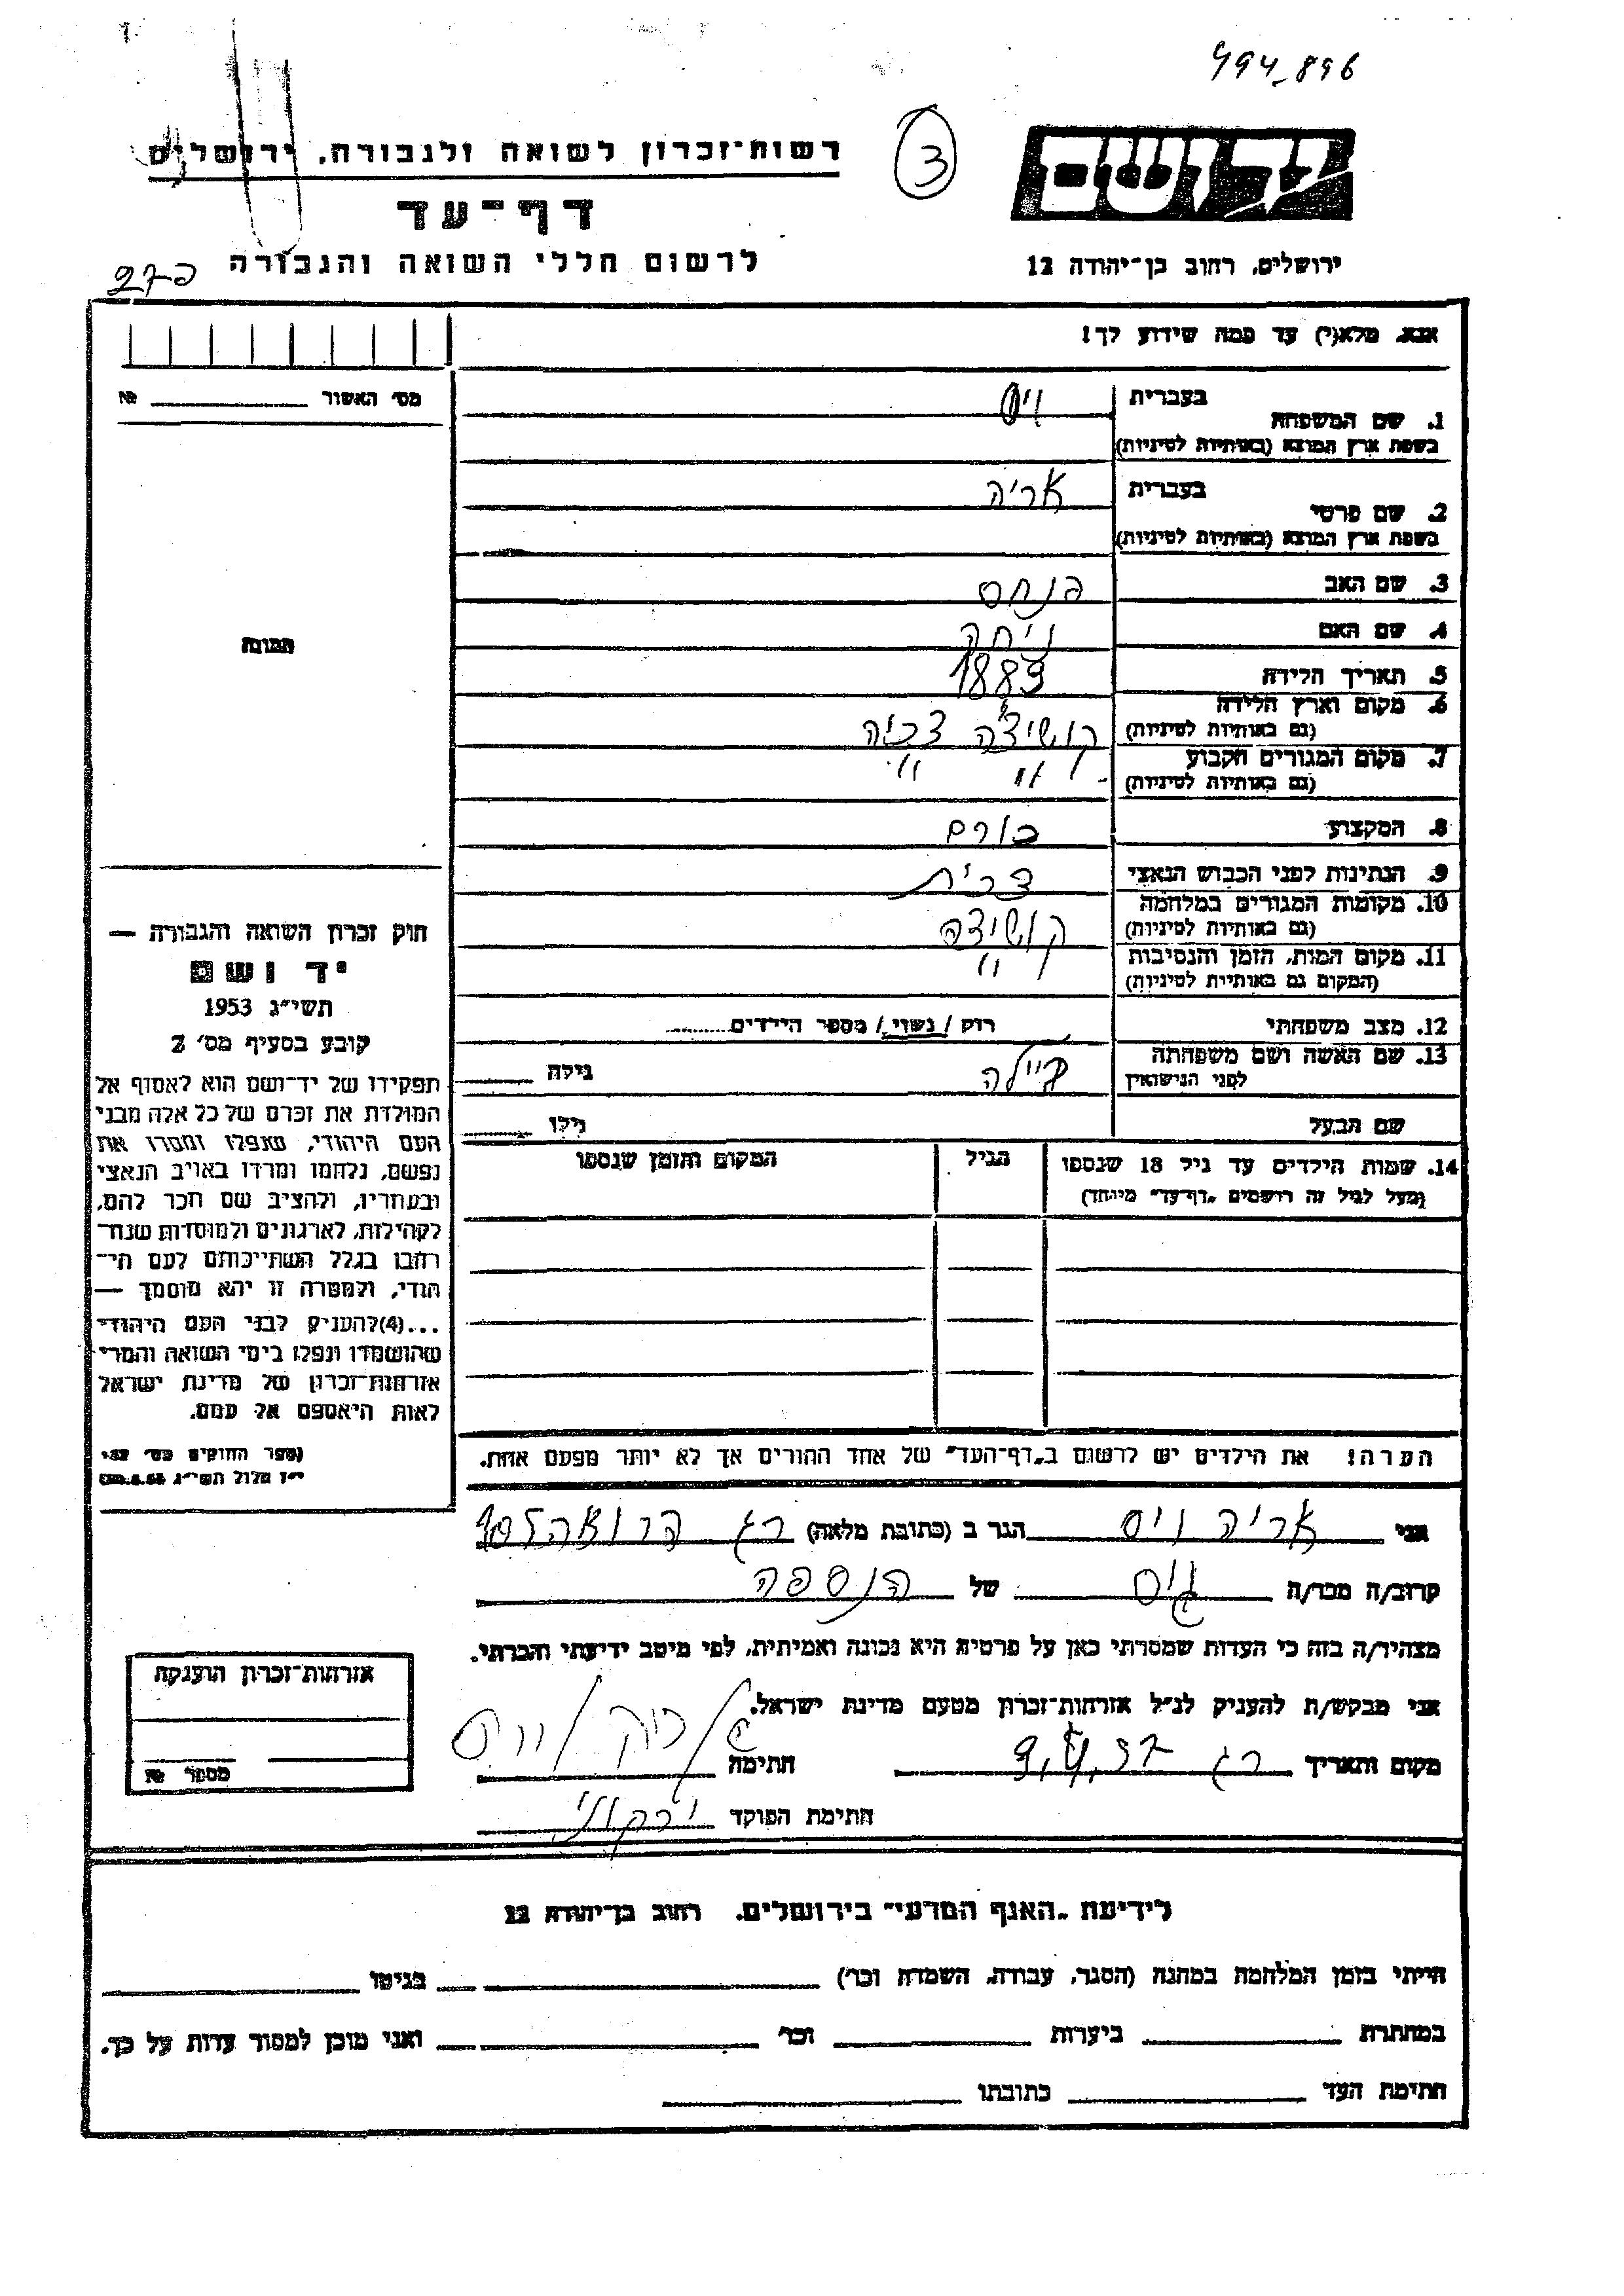 494-896
רשות-זכרון לשואה ולגבורה, ירושלים
3
דף-עד
לרשום חללי השואה והגבורה
ירושלים, רחוב בן-יהודה 12
אנא, מלא(י) עד כמה שידוע לך!
מס' האשור №
1. שם המשפחה
בעברית ויס
בשפת ארץ המוצא (באותיות לטיניות)
2. שם פרטי
בעברית אריה
בשפת ארץ המוצא (באותיות לטיניות)
3. שם האב פנחס
4. שם האם
5. תאריך הלידה 1883
6. מקום וארץ הלידה
(גם באותיות לטיניות)
קושיצה צכיה
7. מקום המגורים הקבוע
(גם באותיות לטיניות)
" "
8. המקצוע כורם
9. הנתינות לפני הכבוש הנאצי צכית
10. מקומות המגורים במלחמה
(גם באותיות לטיניות)
קושיצה
11. מקום המות, הזמן והנסיבות
(המקום גם באותיות לטיניות)
"
12. מצב משפחתי רוק / נשוי / מספר הילדים
13. שם האשה ושם משפחתה
לפני הנישואין
גילה
שם הבעל גילו
14. שמות הילדים עד גיל 18 שנספו
(מעל לגיל זה רושמים "דף-עד" מיוחד)
הגיל
המקום והזמן שנספו
הערה! את הילדים יש לרשום ב"דף-העד" של אחד ההורים אך לא יותר מפעם אחת.
תמונה
חוק זכרון השואה והגבורה —
יד ושם
תשי"ג 1953
קובע בסעיף מס' 2
תפקידו של יד-ושם הוא לאסוף אל
המולדת את זכרם של כל אלה מבני
העם היהודי, שנפלו ומסרו את
נפשם, נלחמו ומרדו באויב הנאצי
ובעוזריו, ולהציב שם וזכר להם,
לקהילות, לארגונים ולמוסדות שנח-
רבו בגלל השתייכותם לעם הי-
הודי, ולמטרה זו יהא מוסמך —
...(4) להעניק לבני העם היהודי
שהושמדו ונפלו בימי השואה והמרי
אזרחות-זכרון של מדינת ישראל
לאות היאספם אל עמם.
(ספר החוקים מס' 132,
י"ז אלול תשי"ג 28.8.53)
אני אריה ויס הגר ב (כתובת מלאה) רג
קרוב/ה מכר/ה גיס של הנספה
מצהיר/ה בזה כי העדות שמסרתי כאן על פרטיה היא נכונה ואמיתית, לפי מיטב ידיעתי והכרתי.
אני מבקש/ת להעניק לנ"ל אזרחות-זכרון מטעם מדינת ישראל.
מקום ותאריך רג חתימה
חתימת הפוקד
אזרחות-זכרון הוענקה
מספר №
לידיעת "האגף המדעי" בירושלים, רחוב בן-יהודה 12
הייתי בזמן המלחמה במחנה (הסגר, עבודה, השמדה וכו') בגיטו
במחתרת ביערות וכו' ואני מוכן למסור עדות על כך.
חתימת העד כתובתו